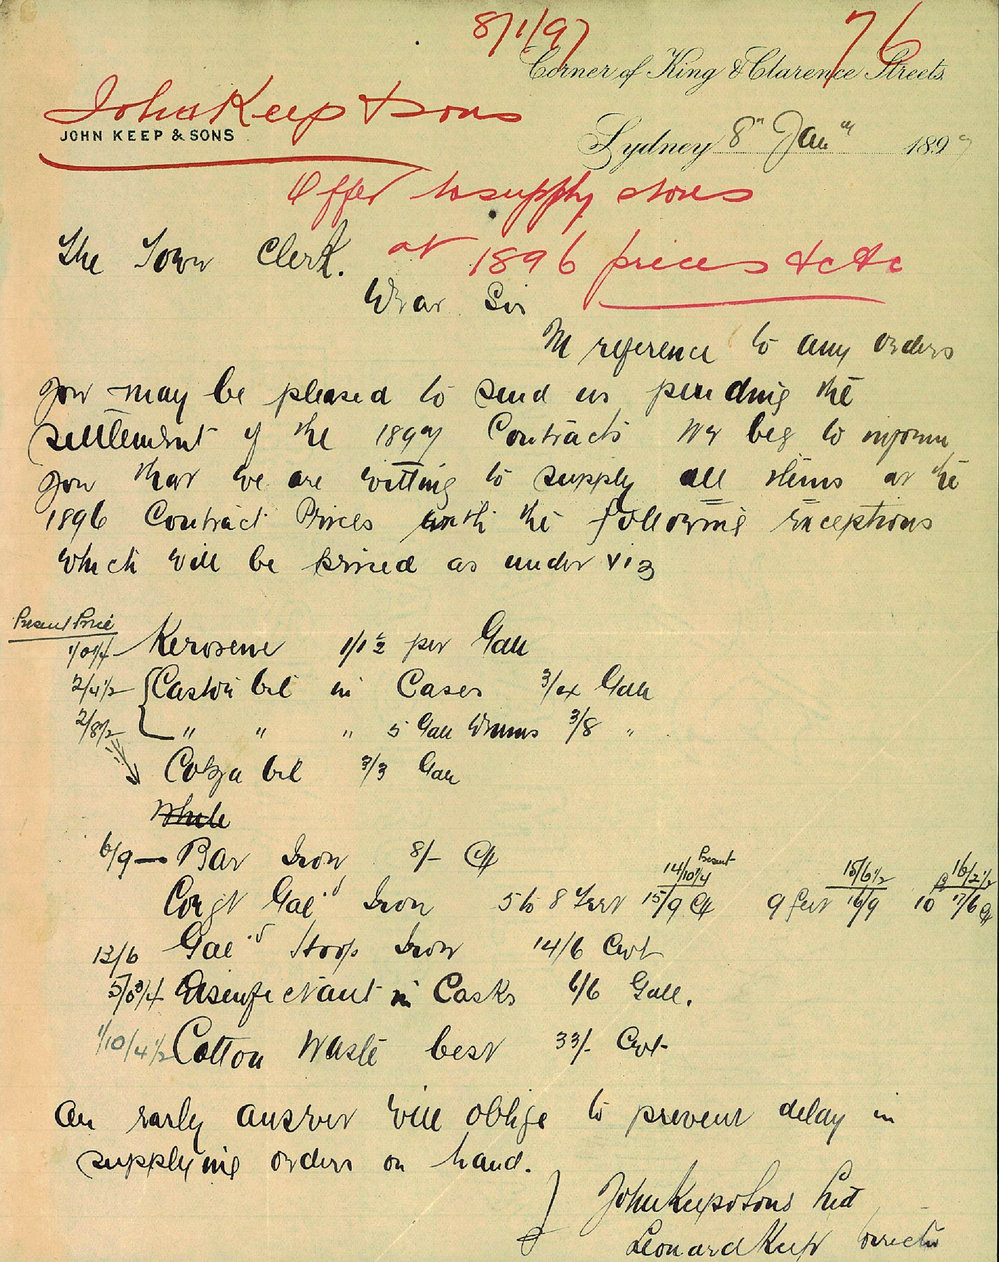 8/1/97
76
Corner of King & Clarence Streets
John Keep & Sons
JOHN KEEP & SONS
Sydney 8th Jany 1897
Offer to supply stores
at 1896 prices &c &c
The Town Clerk.
Dear Sir
In reference to any orders
you may be pleased to send us pending the
settlement of the 1897 Contracts we beg to inform
you that we are willing to supply all items at the
1896 Contract Prices with the following exceptions
which will be priced as under viz
Present Price
1/0 1/4 Kerosene 1/1 1/2 per Gall
2/4 1/2 Castor Oil in Cases 3/4 Gall
2/8 1/2 " " " 5 Gall Drums 3/8 "
Colza Oil 3/3 Gall
6/9 Bar Iron 8/- Ct
Present
14/10 1/4 15/6 1/2 16/2 1/2
Corgt Gald Iron 5 to 8 Feet 15/9 Ct 9 feet 16/9 10 17/6 Ct
13/6 Gald Hoop Iron 14/6 Cwt
5/0 3/4 Disinfectant in Casks 6/6 Gall.
1/10/4 1/2 Cotton Waste best 33/- Cwt
An early answer will oblige to prevent delay in
supplying orders on hand.
John Keep & Sons Ltd
Leonard Keep Director